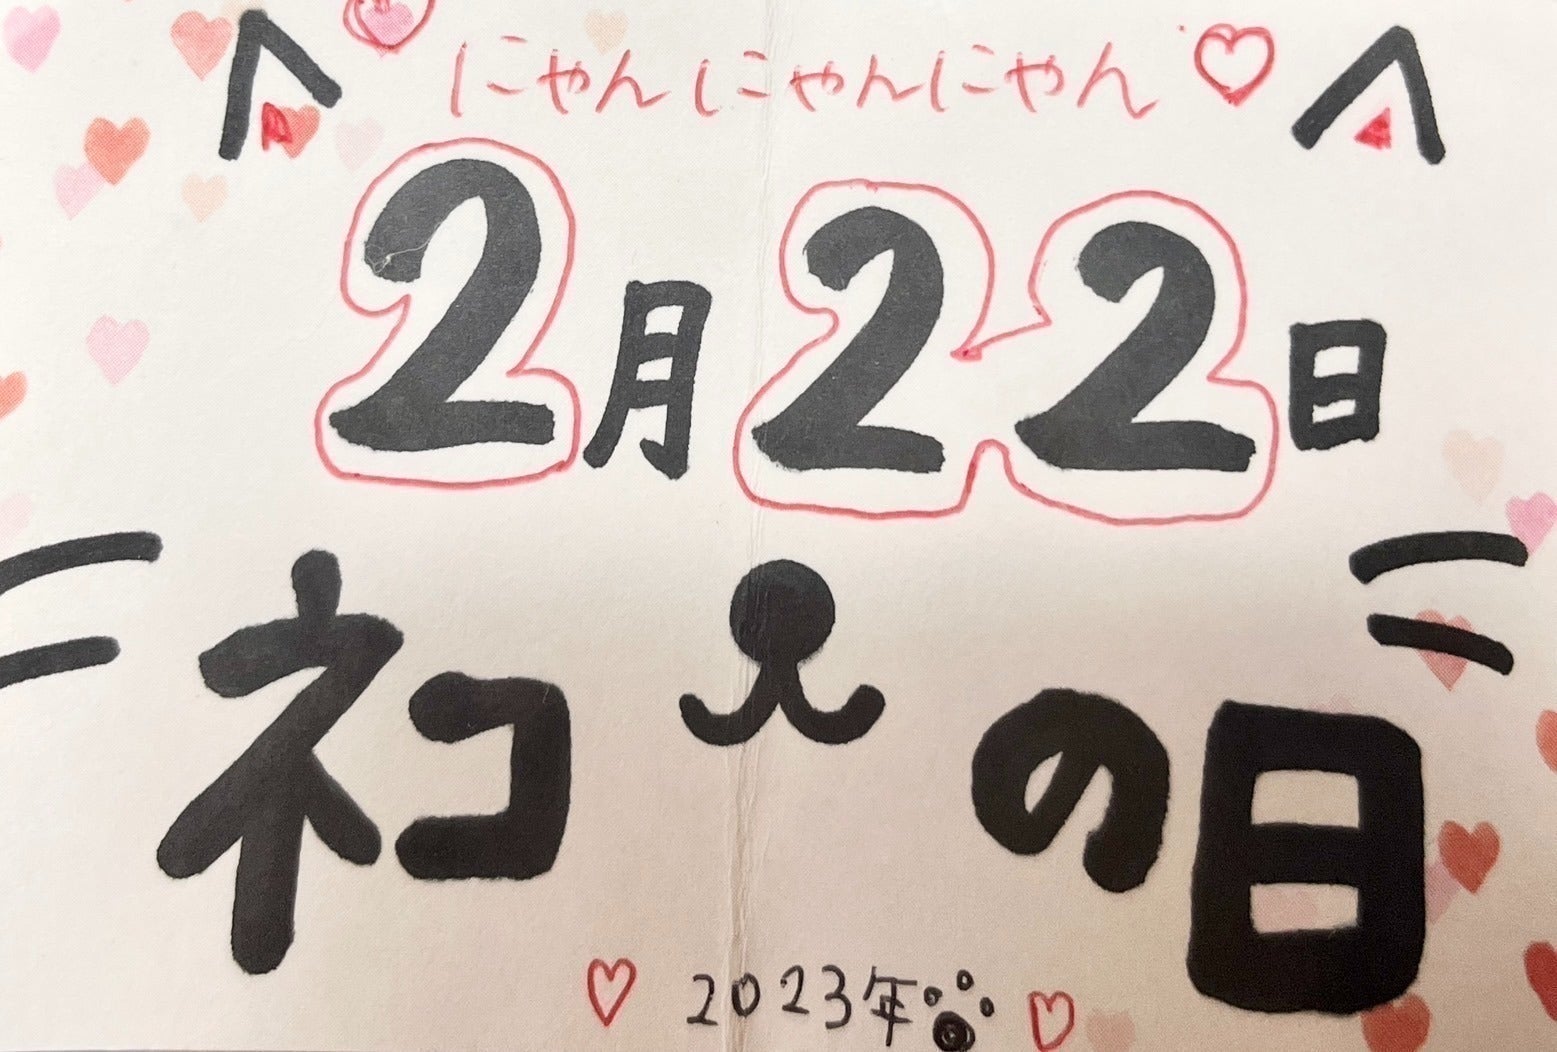 にゃんにゃんにゃん
2月22日
ネコの日
2023年